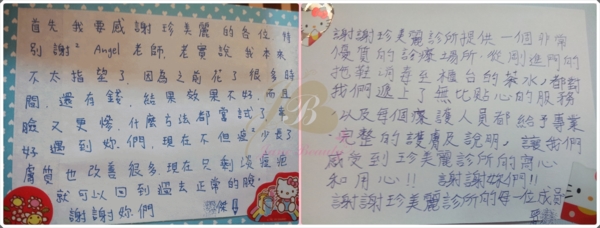 首先 我要感謝珍美麗的各位,特
別謝² Angel 老師,老實說我本來
不太指望了,因為之前花了很多時
間,還有錢,結果效果不好,而且
臉又更慘,什麼方法都嘗試了,幸
好遇到妳們,現在不但痘²少長了
膚質也改善很多,現在只剩淡疤痕
就可以回到過去正常的臉,
謝謝妳們
謝謝珍美麗診所提供一個非常
優質的診療場所,從剛進門的
拖鞋,洞壺至櫃台的茶水,都對
我們遞上了無比貼心的服務
,以及每個樣護人員都給予專業
、完整的護膚及說明,讓我們
感受到珍美麗診所的用心
和用心!! 謝謝妳們!!
謝謝珍美麗診所的每一位成員